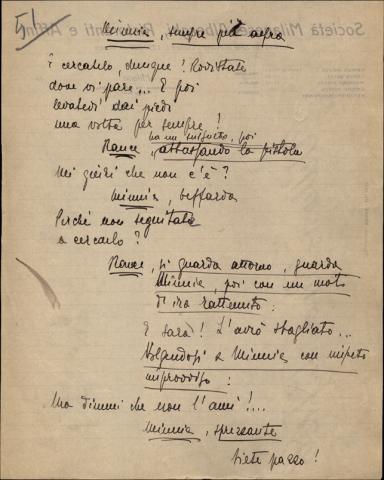 5)
Minnie, sempre più aspra
E cercatelo, dunque! Rovistate
dove vi pare... E poi
levatevi dai piedi
una volta per sempre!
Rance ha un sussulto, poi
abbassando la pistola
Mi giuri che non c'è?
Minnie, beffarda
Perché non seguitate
a cercarlo?
Rance, si guarda attorno, guarda
Minnie, poi con un moto
di ira rattenuto:
E sarà! L'avrò sbagliato...
Volgendosi a Minnie con impeto
improvviso:
Ma dimmi che non l'ami!...
Minnie, sprezzante
Siete pazzo!